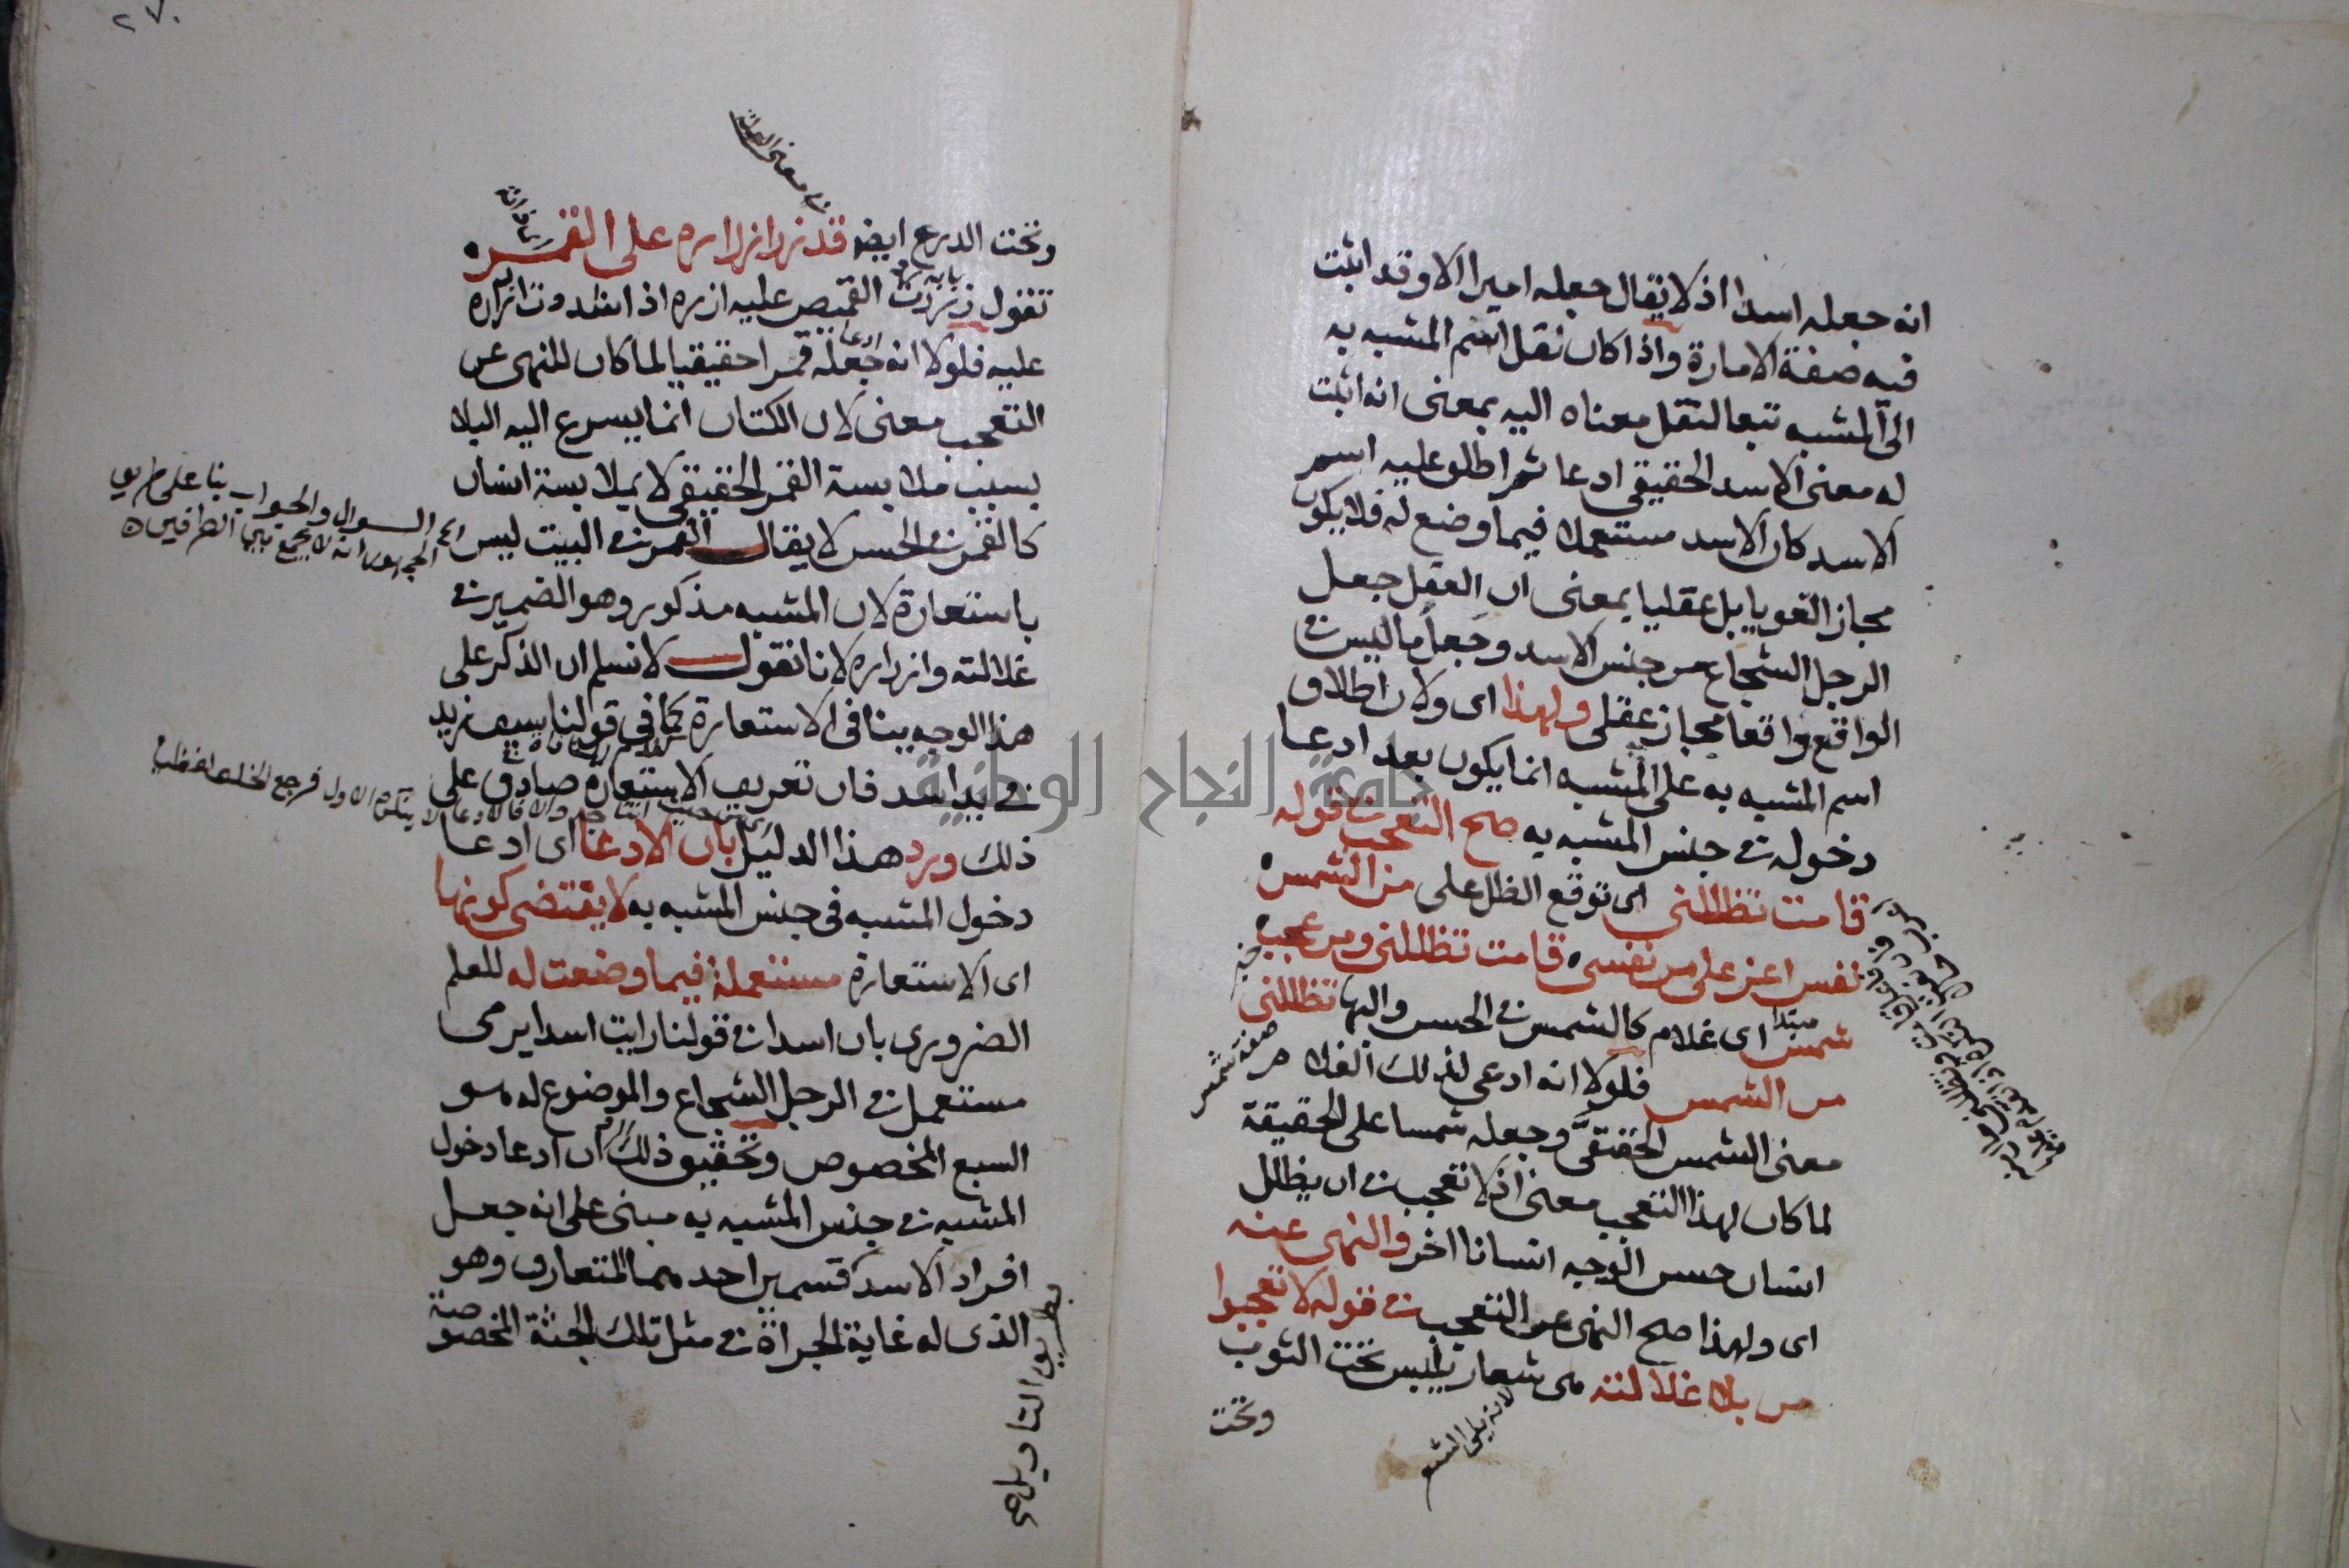 انه جعله اسدا اذ لا يقال جعله اميرا الا وقد اثبت
فيه صفة الامارة واذا كان نقل اسم المشبه به
الى المشبه تبعا لنقل معناه اليه بمعنى انه اثبت
له معنى الاسد الحقيقى ادعا ثم اطلق عليه اسم
الاسد كان الاسد مستعملا فيما وضع له فلا يكون
مجازا لغويا بل عقليا بمعنى ان العقل جعل
الرجل الشجاع من جنس الاسد وجعل ما ليس فى
الواقع واقعا مجاز عقلى ولهذا اى ولان اطلاق
اسم المشبه به على المشبه انما يكون بعد ادعا
دخوله فى جنس المشبه به صح التعجب فى قوله
قامت تظللنى اى توقع الظل على من الشمس
نفس اعز على من نفسى قامت تظللنى ومن عجب
شمس اى غلام كالشمس فى الحسن والبها تظللنى
من الشمس فلولا انه ادعى لذلك الغلام
معنى الشمس الحقيقى وجعله شمسا على الحقيقة
لما كان لهذا التعجب معنى اذ لا تعجب فى ان يظلل
انسان حسن الوجه انسانا اخر والنهى عنه
اى ولهذا صح النهى عن التعجب فى قوله لا تعجبوا
من بلا غلالته هى شعار يلبس تحت الثوب
وتحت
مبتدا
خبر
صفة شمس
لانه يلى
٢٧٠
فى معنى
وتحت الدرع ايضا قد زر ازراره على القمر
تقول زررت القميص عليه ازره اذا شددت ازراره
عليه فلولا انه جعله قمرا حقيقيا لما كان للنهى عن
التعجب معنى لان الكتان انما يسرع اليه البلا
بسبب ملابسة القمر الحقيقى لا بملابسة انسان
كالقمر فى الحسن لا يقال القمر فى البيت ليس
باستعارة لان المشبه مذكور وهو الضمير فى
غلالته وازراره لانا نقول لا نسلم ان الذكر على
هذا الوجه ينافى الاستعارة كما فى قولنا سيف زيد
فى يد اسد فان تعريف الاستعارة صادق على
ذلك ورد هذا الدليل بان الادعا اى ادعا
دخول المشبه فى جنس المشبه به لا يقتضى كونها
اى الاستعارة مستعملة فيما وضعت له للعلم
الضرورى بان اسدا فى قولنا رايت اسدا يرمى
مستعمل فى الرجل الشجاع والموضوع له هو
السبع المخصوص وتحقيق ذلك ان ادعا دخول
المشبه فى جنس المشبه به مبنى على انه جعل
افراد الاسد قسمين احدهما المتعارف وهو
الذى له غاية الجراة فى مثل تلك الجثة المخصوصة
بطريق التاويل
السوال والجواب بنا على طريق
الجمهور انه لا يجمع بين الطرفين
جامعة النجاح الوطنية